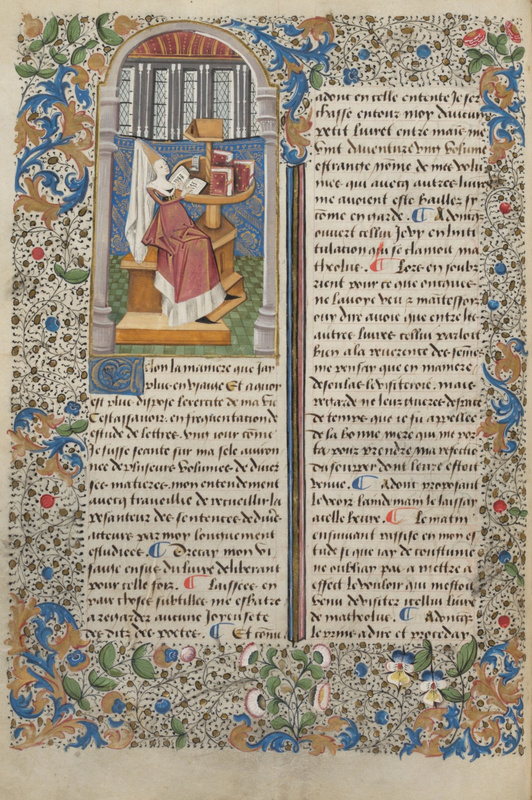 Selon la maniere que jay
plus en vsaige Et a quoy
est plus dispose lexercite de ma vie
Cestassauoir en frequentation de
estude de lettres vng iour cōme
Je fusse seante en ma sele auiron
nee de plusieurs volumes de diuer
ses matieres mon entendement
auecq traueille de recueillir la
pesanteur des sentences de diuers
acteurs par moy longuement
estudiees ¶ Drecay mon vi
saige ensus du liure deliberant
pour celle foiz ¶ Laisser en
paix choses subtilles me esbatre
a regarder aucune joyeusete
des ditz des poetes ¶ Et cōme
adont en celle entente Je ser
chasse entour moy daucun
petit liuret entre mains me
vint dauenture vng volume
estrange nōme de mes volu
mes qui auecq autres liures
me auoient este baillez sy
cōme en garde ¶ Adonq
ouuert cellui Je vy en linti
tulation qui se clamoit ma
theolus ¶ Lors en soubz
rient pour ce que oncques
ne lauoye veu et maintessois
ouy dire auoie que entre les
autres liures cellui parloit
bien a la reuerence des femes
me pensay que en maniere
de soulas le visiteroie mais
regarde ne leuz gueres despace
de temps que ie fu appellee
de la bonne mere qui me por
ta pour prendre ma refectio
du souper dont leure estoit
venue ¶ Adont proposant
le veoir landemain le laissay
a celle heure ¶ Le matin
ensuiuant rassise en mon es
tude si que jay de coustume
ne oubliay pas a mettre a
effect le vouloir qui mestoit
venu de visiter icellui liure
de matheolus ¶ Adonc
le prins a lire et proceday